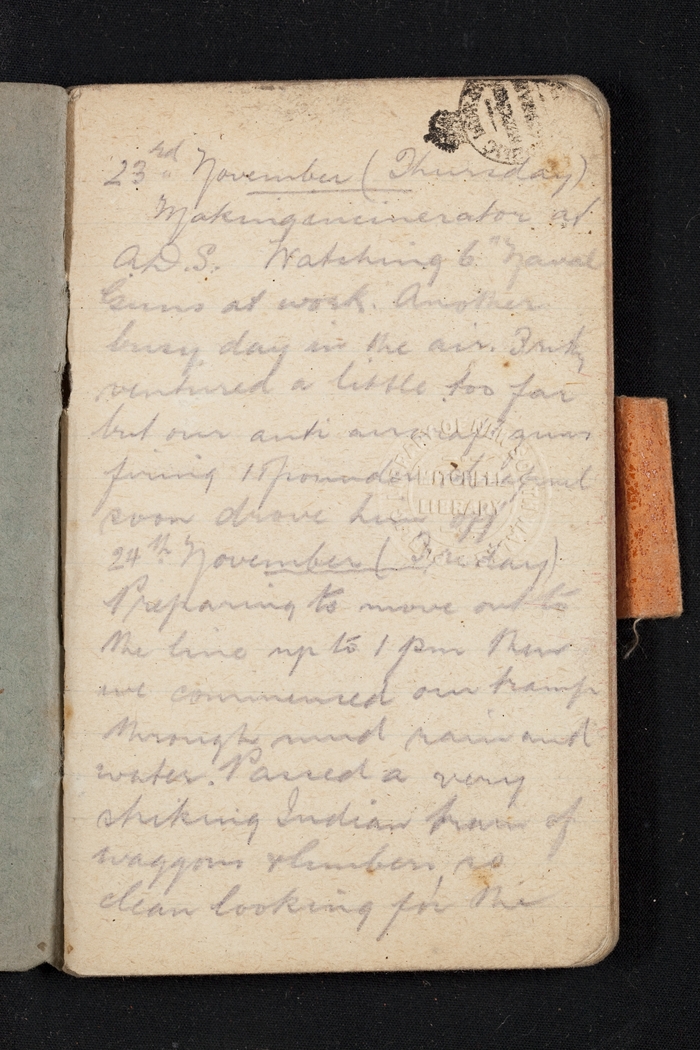 23rd November (Thursday)
Making incinerator at
A.D.S. Watching 6" Naval
Guns at work. Another
busy day in the air. Fritz
ventured a little too far
but our anti aircraft guns
firing 18 pounder shrapnel
soon drove him off
24th November (Friday)
Preparing to move out to
the line up to 1 pm then
we commenced our tramp
through mud rain and
water. Passed a very
striking Indian train of
waggons & limbers, so
clean looking for the
MITCHELL
LIBRARY